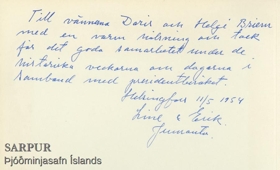 Till vännerna Doris och Helgi Briem
med en varm hälsning och tack
för det goda samarbetet under de
historiska veckorna och dagarna i
samband med presidentbesöket.
Helsingfors 11/5 1954
&
SARPUR
Þjóðminjasafn Íslands